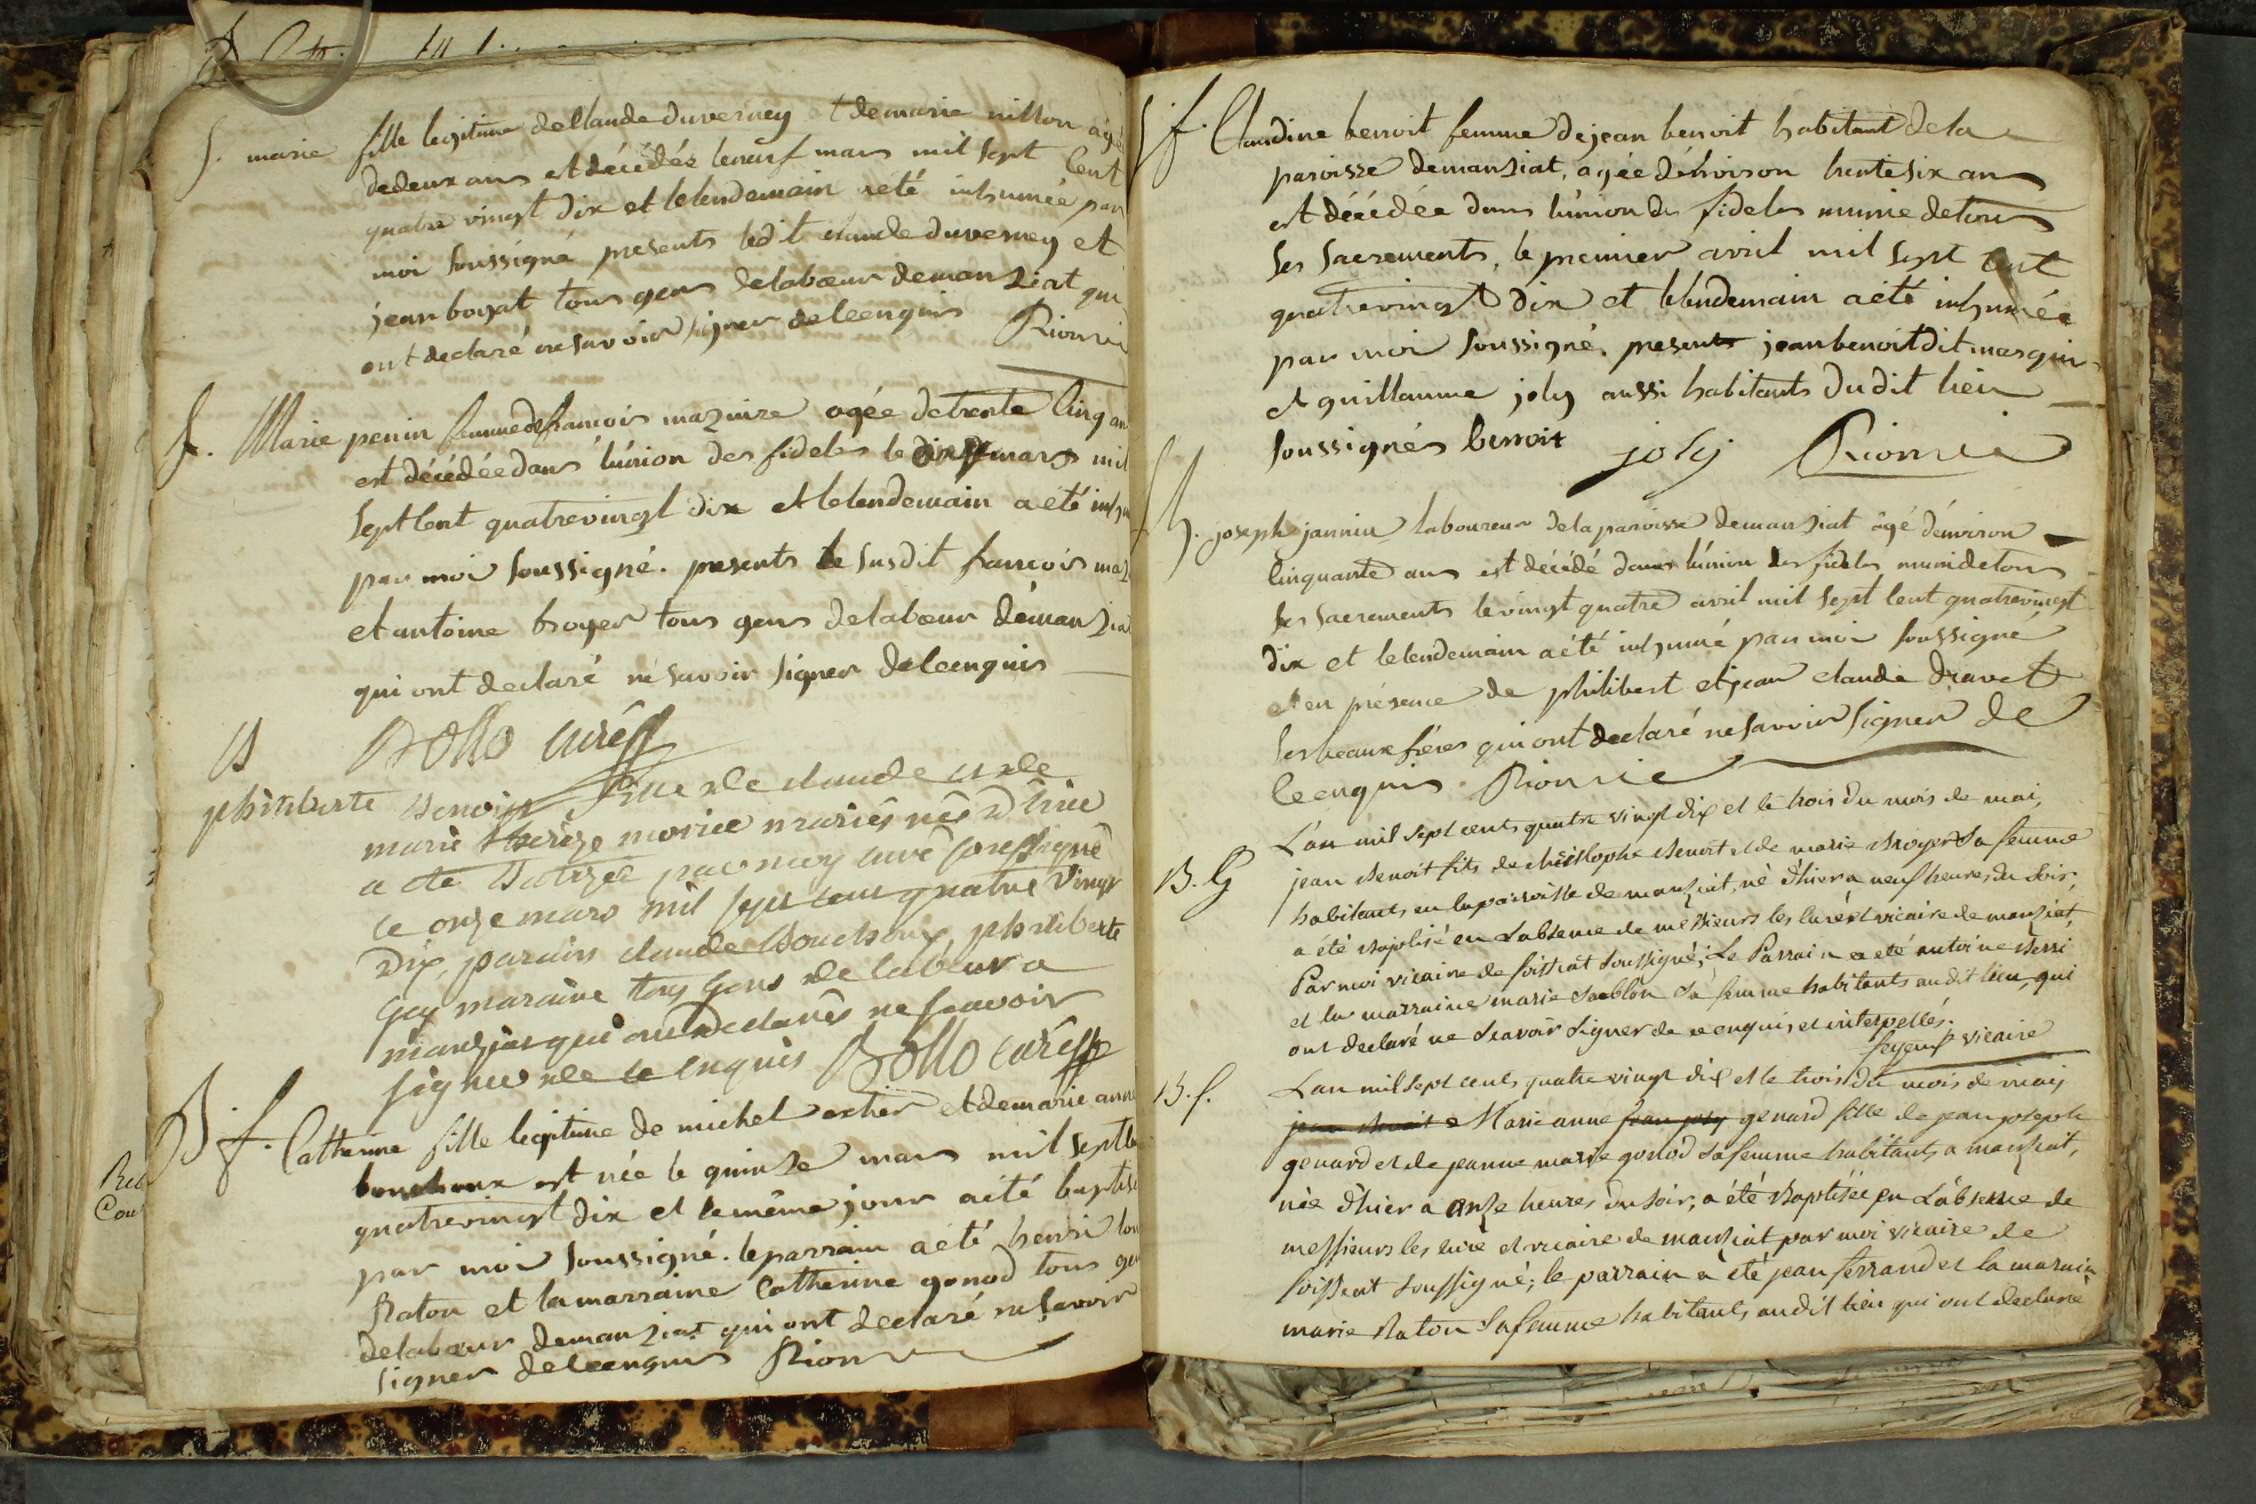 S. marie fille legitime de Claude duverney et de marie nillon agée
de deux ans est décédée le neuf mars mil sept Cent
quatre vingt dix et le lendemain a été inhumée par
moi soussigné presents ledit claude duverney et
jean boyat tous gens de labœur de manziat qui
ont declaré ne savoir signer de ce enquis Rionni
S. Marie penin femme de francois maznire agée de trente Cinq an
est décédée dans l'union des fideles le dix mars mil
sept Cent quatrevingt dix et le lendemain a été inhu
par moi soussigné. presents le susdit francois maz
et antoine broyer tous gens de labœur de manzia
qui ont declaré ne savoir signer de ce enquis
B Bollo curé
philiberte Benoist fille de claude et de
marie therèze morice mariés née d'hier
a été Batizée par moy curé soussigné
le onze mars mil sept cent quatre Vingt
Dix, parain claude Bouchoux, philiberte
Guy maraine tous Gens de labeur a
manziat qui ont Declarés ne sçavoir
signer de ce enquis Bollo curé
B. f. Catherine fille legitime de michel exher et de marie anne
bouchoux est née le quinze mars mil sept Ce
quatrevingt dix et le même jour a été baptisé
par moi soussigné. le parrain a été henri
Raton et la marraine Catherine gonod tous gen
de labœur de manziat qui ont declaré ne savoir
signer de ce enquis Rionni
S f. Claudine benoit femme de jean benoit habitant de la
paroisse de manziat, agée d'environ trente six ans
est décédée dans l'union des fideles munie de tous
ses sacrements, le premier avril mil sept Cent
quatrevingt dix et le lendemain a été inhumée
par moi soussigné. presents jean benoit dit masquin
et guillaume joly aussi habitants dudit lieu
soussignés benoit joly Rionnie
S h. joseph jannin laboureur de la paroisse de manziat âgé d'environ
Cinquante ans est décédé dans l'union des fideles muni de tous
ses sacrements le vingt quatre avril mil sept Cent quatrevingt
dix et le lendemain a été inhumé par moi soussigné
et en présence de philibert et jean claude dravet
ses beaux frères qui ont declaré ne savoir signer de
ce enquis. Rionnie
L'an mil sept cents quatre vingt dix et le trois du mois de mai,
B. G jean Benoit fils de christophe Benoit et de marie Broyer Sa femme
habitants en la paroisse de manziat, né d'hier a neuf heures du Soir,
a été Baptisé en L'absence de messieurs les curé et vicaire de manziat,
Par moi vicaire de foissiat Soussigné; Le Parrain a eté antoine
et la marraine marie Sablon Sa femme habitants audit lieu, qui
ont declaré ne Sçavoir Signer de ce enquis et interpellés.
vicaire
B. f. L'an mil sept cents quatre vingt dix et le trois du mois de mai
jean Benoit Marie anne jean genard fille de jean joseph
genard et de jeanne marie gonod Sa femme habitants a manziat,
née d'hier a onze heures du Soir, a été Baptisée en L'absence de
messieurs les curé et vicaire de manziat par moi vicaire de
foissiat Soussigné; le parrain a été jean ferrand et la marain
marie Raton Sa femme habitants audit lieu qui ont declaré